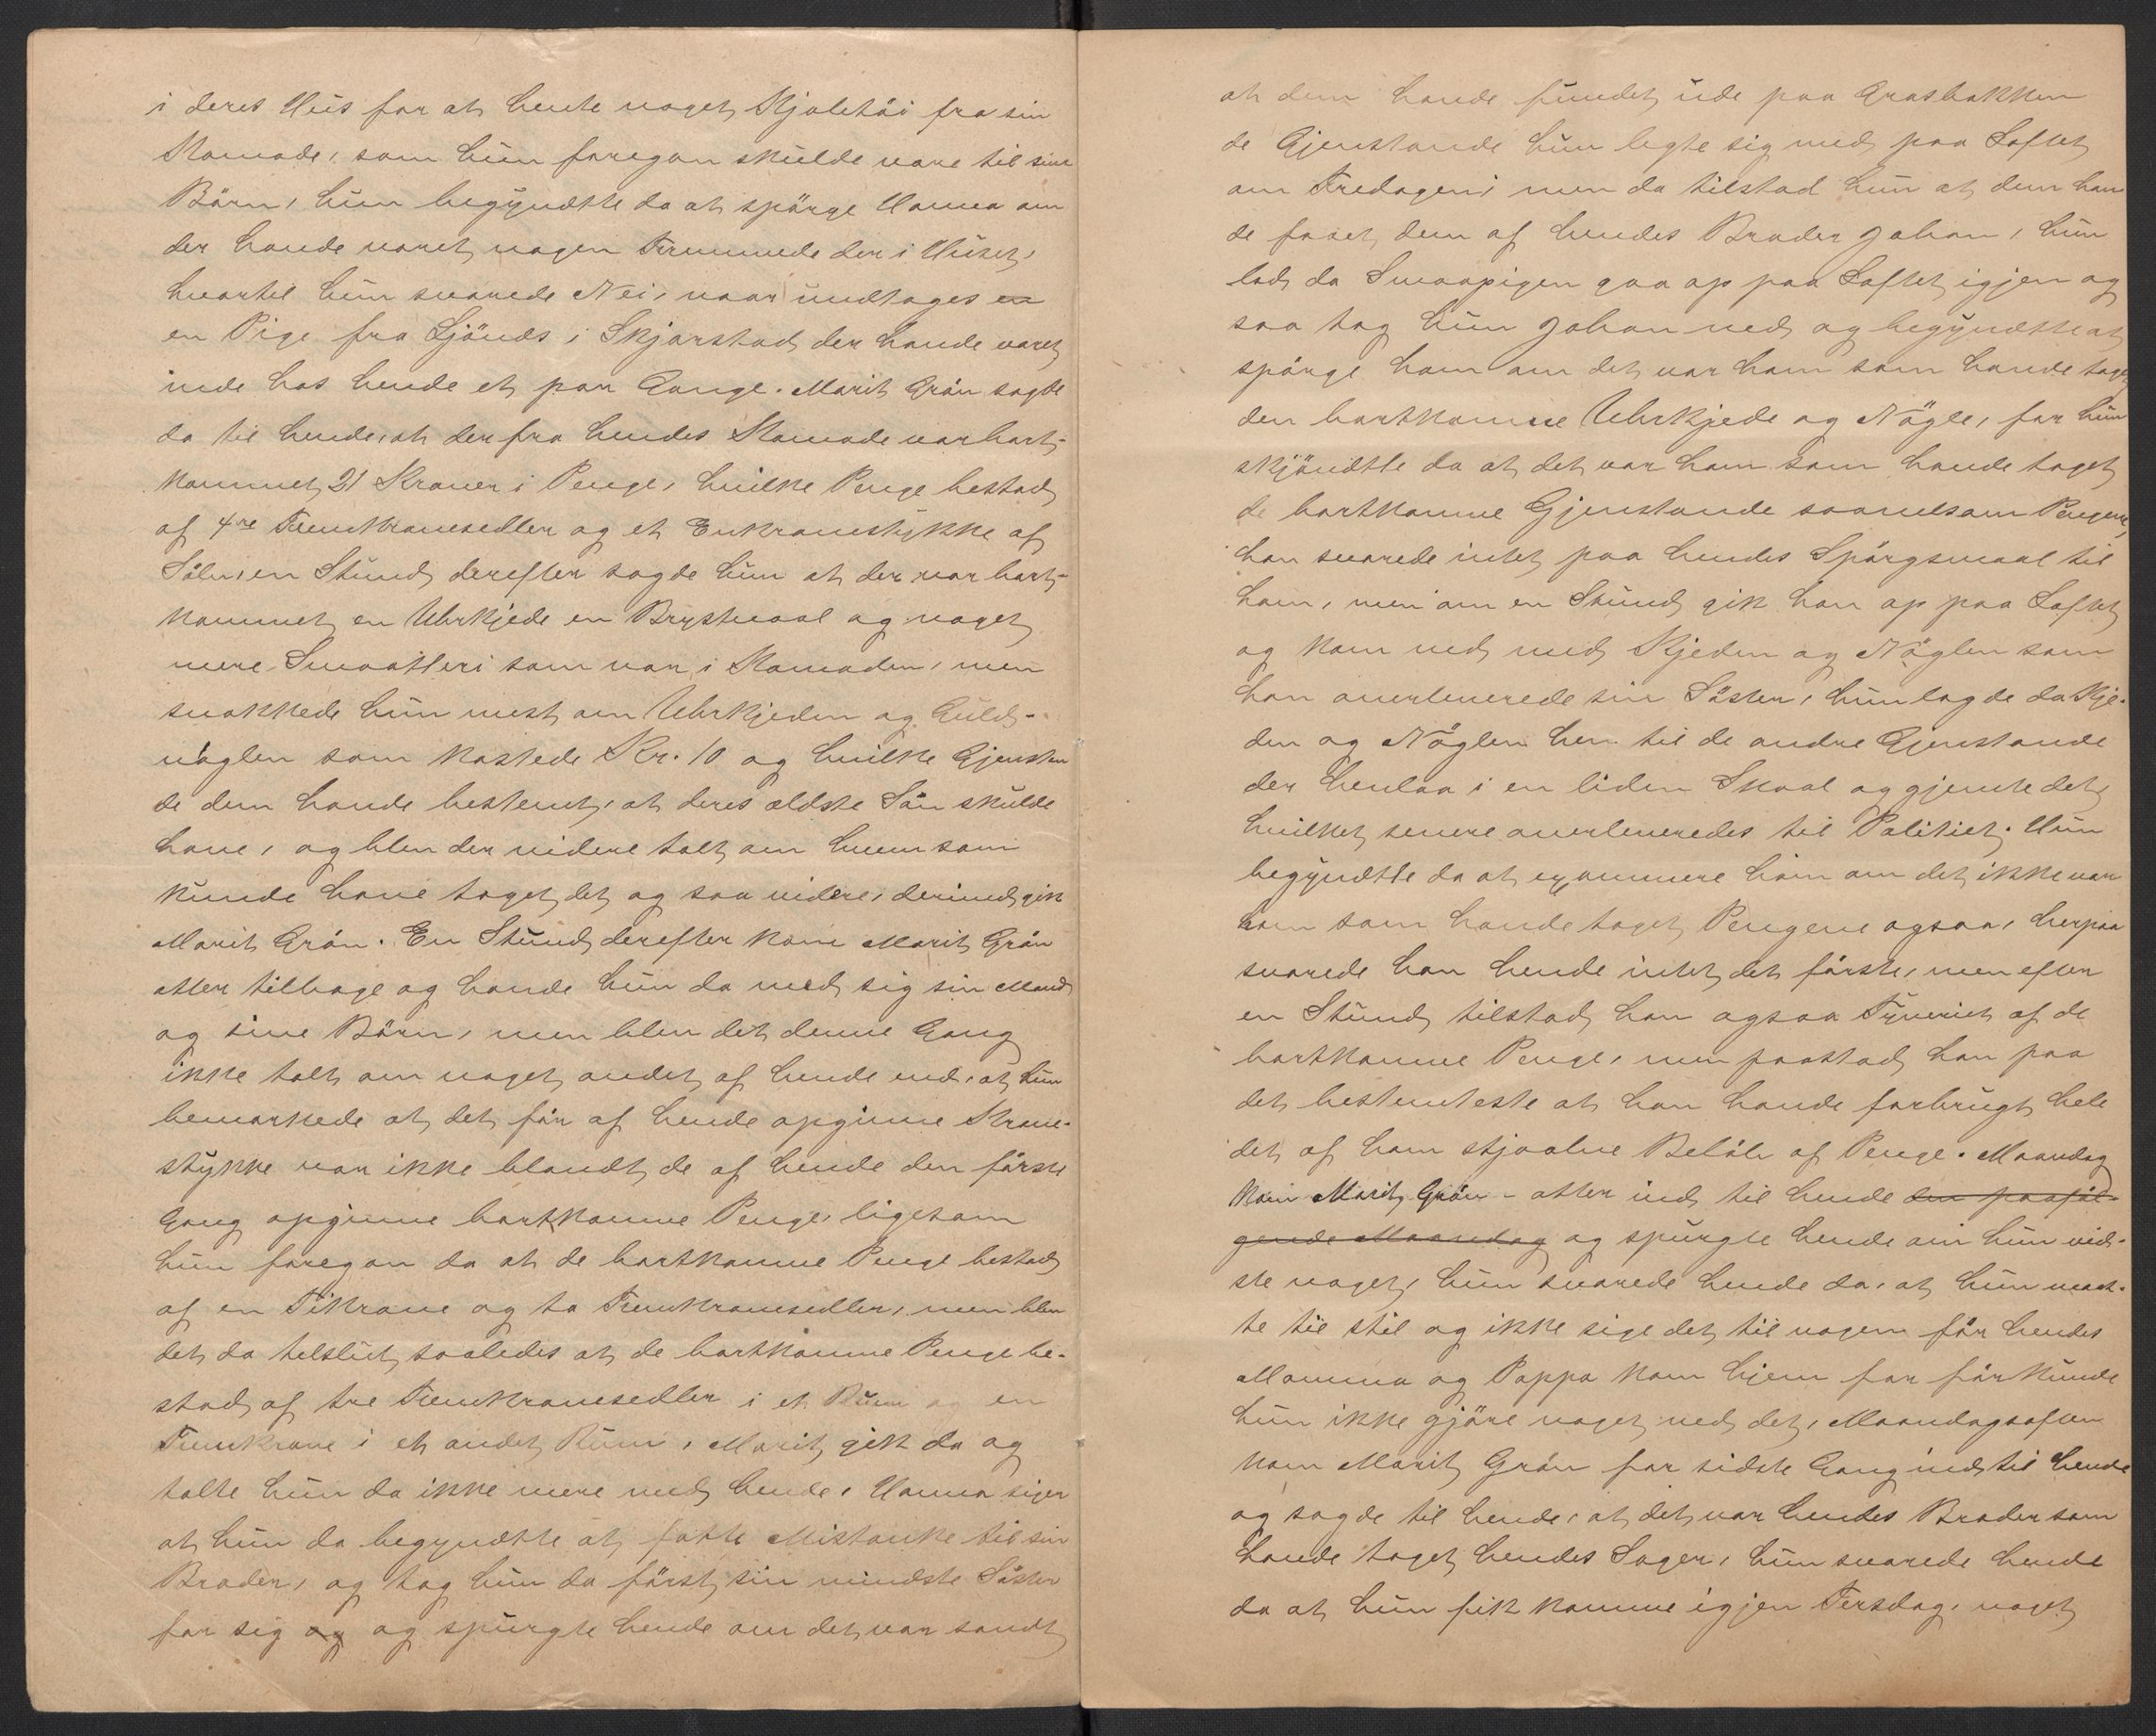 i deres Hus for at hente noget Kjoletøi fra sin
Komode, som hun foregav skulde være til sine
Børn, hun begyndte da at spørge Hanna om
der havde været nogen Fremmede der i Huset,
hvortil hun svarede Nei, naar undtages en
en Pige fra Ljønes i Skjærstad, der havde været
inde hos hende et par Gange. Marit Grøn sagde
da til hende, at der fra hendes Komode var bort-
kommet 21 Kroner i Penge, hvilke Penge bestod
af 4re Femkronesedler og et Enkronestykke af
Sølv, en Stund derefter sagde hun at der var bort-
kommet en Uhrkjede en Brystnaal og noget
mere Smaatteri som var i Komoden, men
snakkede hun mest om Uhrkjeden og Guld-
nøglen som kostede Kr. 10 og hvilke Gjenstan
de dem havde bestemt, at deres ældste Søn skulde
have, og blev der videre talt om hvem som
kunde have taget det og saa videre, derimed gik
Marit Grøn. En Stund derefter kom Marit Grøn
atter tilbage og havde hun da med sig sin Mand
og sine Børn, men blev det denne Gang
ikke talt om noget andet af hende end, at hun
bemærkede at det før af hende opgivne Krone-
stykke var ikke blandt de af hende den første
Gang opgivne bortkomne Penge, ligesom
hun foregav da at de bortkomne Penge bestod
af en Tikrone og to Femkronesedler, men blev
det da tilslut saaledes at de bortkomne Penge be-
stod af tre Femkronesedler i et Rum og en
Femkrone i et andet Rum, Marit gik da og
talte hun da ikke mere med hende. Hanna siger
at hun da begyndte at fatte Mistanke til sin
Broder, og tog hun da først sin mindste Søster
for sig og og spurgte hende om det var sandt
at dem havde fundet ude paa Græsbakken
de Gjenstande hun legte sig med paa Loftet
om Fredagen, men da tilstod hun at dem hav
de faaet dem af hendes Broder Johan, hun
lod da Smaapigen gaa op paa Loftet igjen og
saa tog hun Johan ned og begyndte at
spørge ham om det var ham som havde taget
den bortkomne Uhrkjede og Nøgle, for hun
skjøndte da at det var ham som havde taget
de bortkomne Gjenstande saavelsom Pengene,
han svarede intet paa hendes Spørgsmaal til
ham, men om en Stund gik han op paa Loftet
og kom ned med Kjeden og Nøglen som
han overleverede sin Søster, hun lagde da Kje-
den og Nøglen hen til de andre Gjenstande
der henlaa i en liden Skaal og gjemte det,
hvilket senere overleveredes til Politiet. Hun
begyndte da at examinere ham om det ikke var
ham som havde taget Pengene ogsaa, herpaa
svarede han hende intet det første, men efter
en Stund tilstod han ogsaa Tyveriet af de
bortkomne Penge, men paastod han paa
det bestemteste at han havde forbrugt hele
det af ham stjaalne Beløb af Penge. Mandag
kom Marit Grøn - atter ind til hende den paaføl-
gende Mandag og spurgte hende om hun vid-
ste noget, hun svarede hende da, at hun maat-
te tie stil og ikke sige det til nogen før hendes
Mamma og Pappa kom hjem for før kunde
hun ikke gjøre noget ved det, Mandagsaften
kom Marit Grøn for sidste Gang ind til hende
og sagde til hende, at det var hendes Broder som
havde taget hendes Sager, hun svarede hende
da at hun fik komme igjen Tirsdag, noget